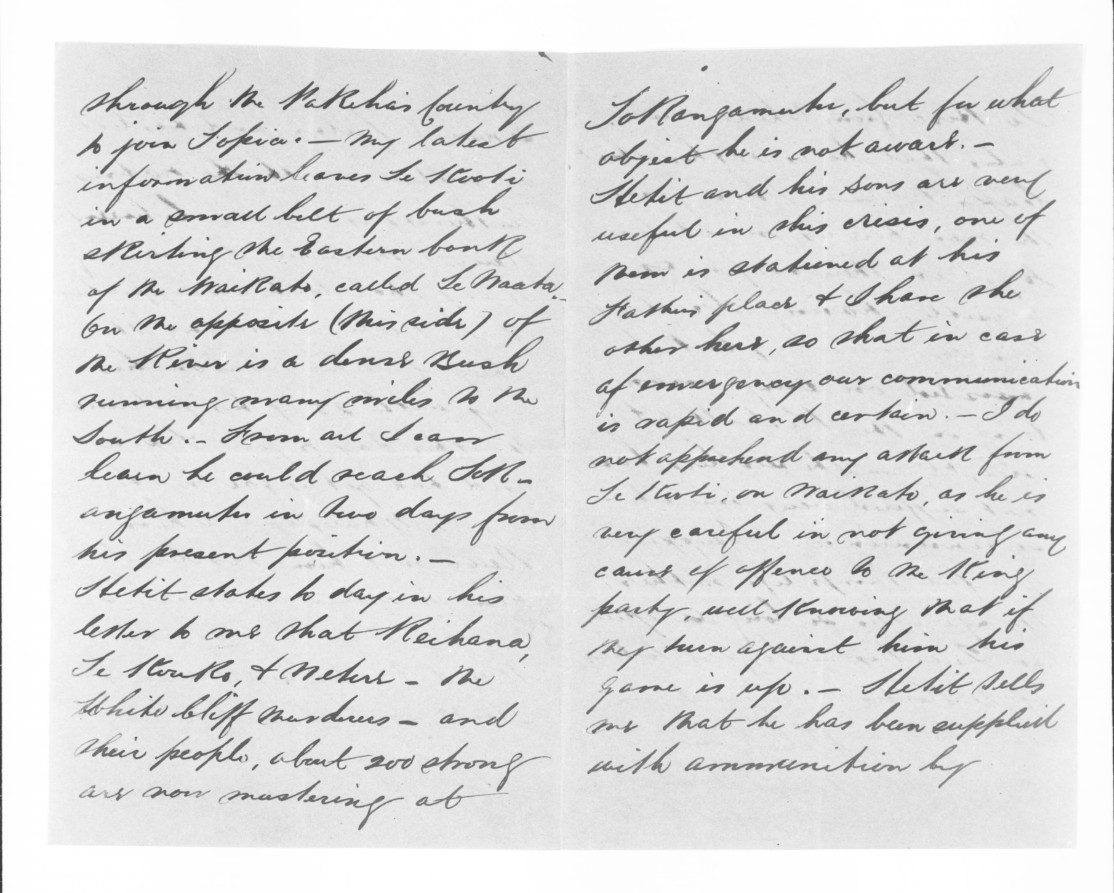 through the Pakeha's Country
to join Topia. — My latest
information leaves Te Kooti
in a small belt of bush
skirting the Eastern bank
of the Waikato, called Te Waata.
(on the opposite (this side) of
the River is a dense Bush
running many miles to the
South. — From all I can
learn he could reach ToR-
angamutu in two days from
his present position. —
Hetit states to day in his
letter to me that Reihana,
Te Kouko, & Netere — the
White Cliff murderers — and
their people, about 200 strong
are now mustering at
ToRangamutu, but for what
object he is not aware. —
Hetit and his sons are very
useful in this crisis, one of
them is stationed at his
Fathers place & I have the
other here, so that in case
of emergency our communication
is rapid and certain. — I do
not apprehend any attack from
Te Kooti, on Waikato, as he is
very careful in not giving any
cause of offence to the King
party, well knowing that if
they turn against him his
game is up. — Hetit tells
me that he has been supplied
with ammunition by